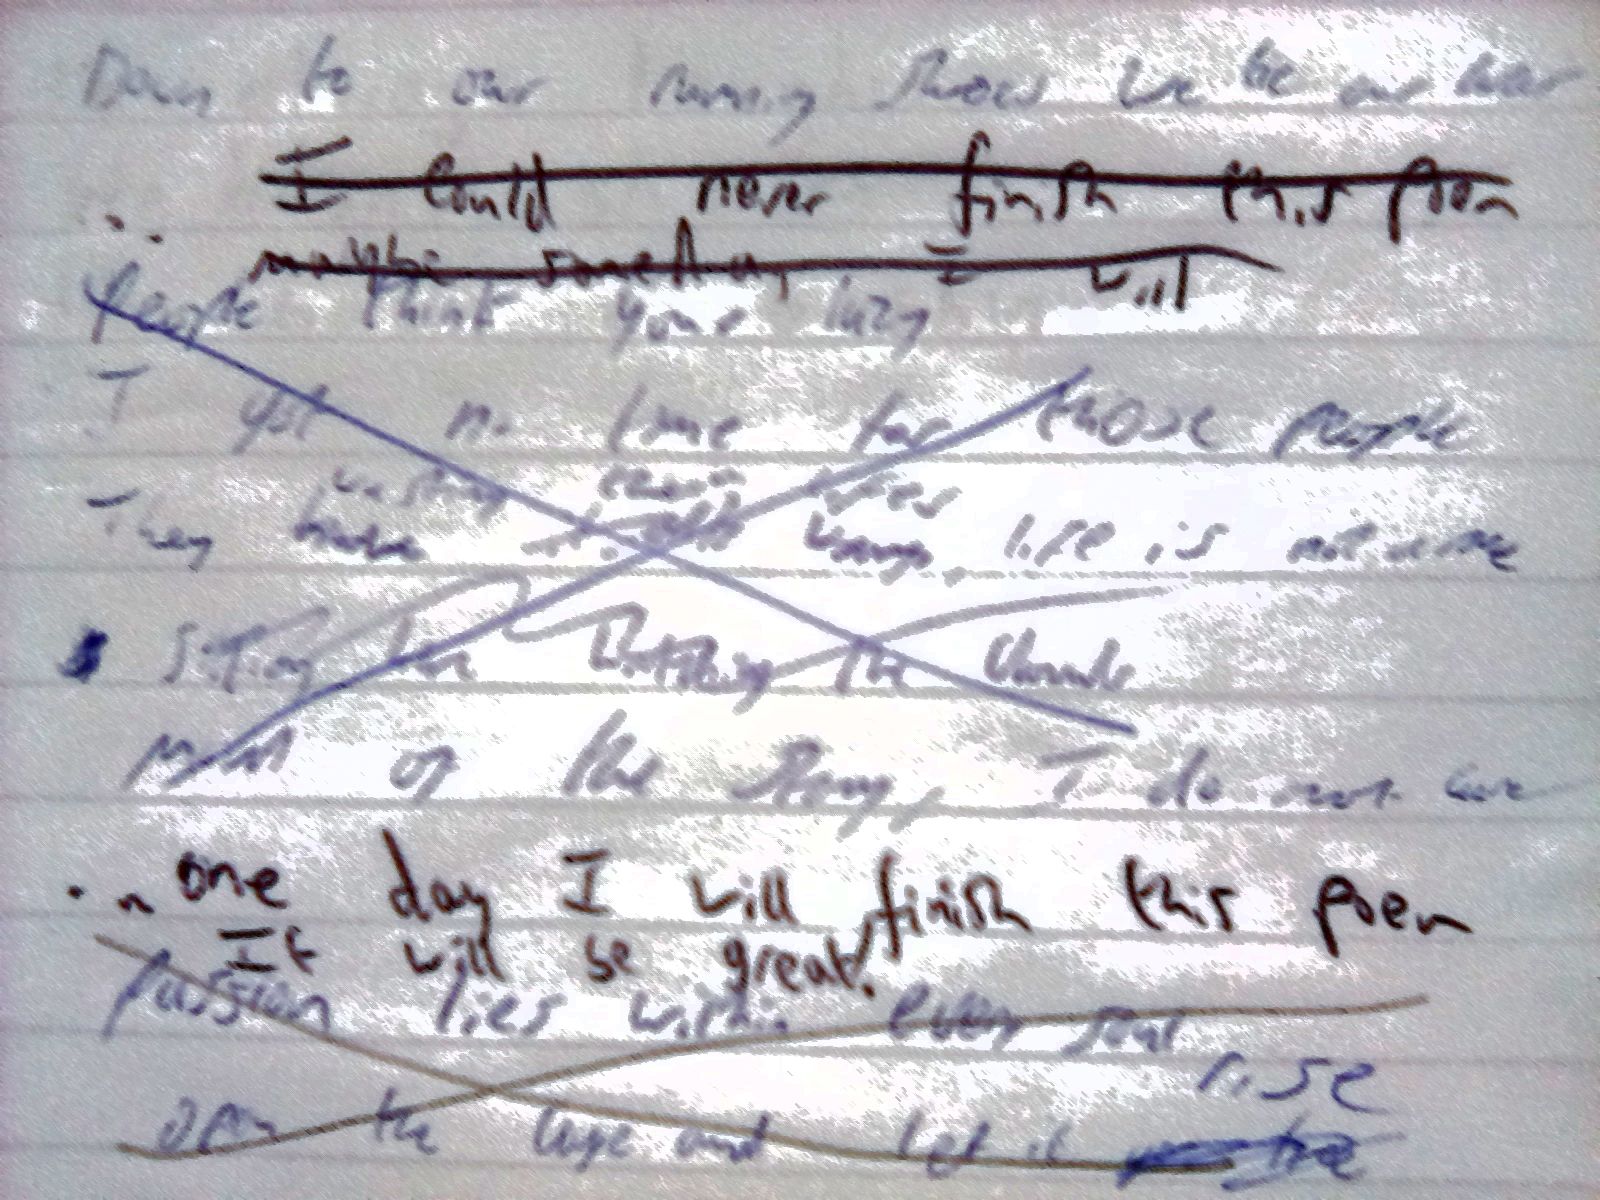 Down to our running shoes we tie our
I could never finish this poem
maybe someday I will
People think your lazy
I got no time for those people
wasting their lives
They life is not a
Sitting the
of the story, I do not care
one day I will finish this poem
It will be great.
passion lies within every soul
rise
open the cage and let it free